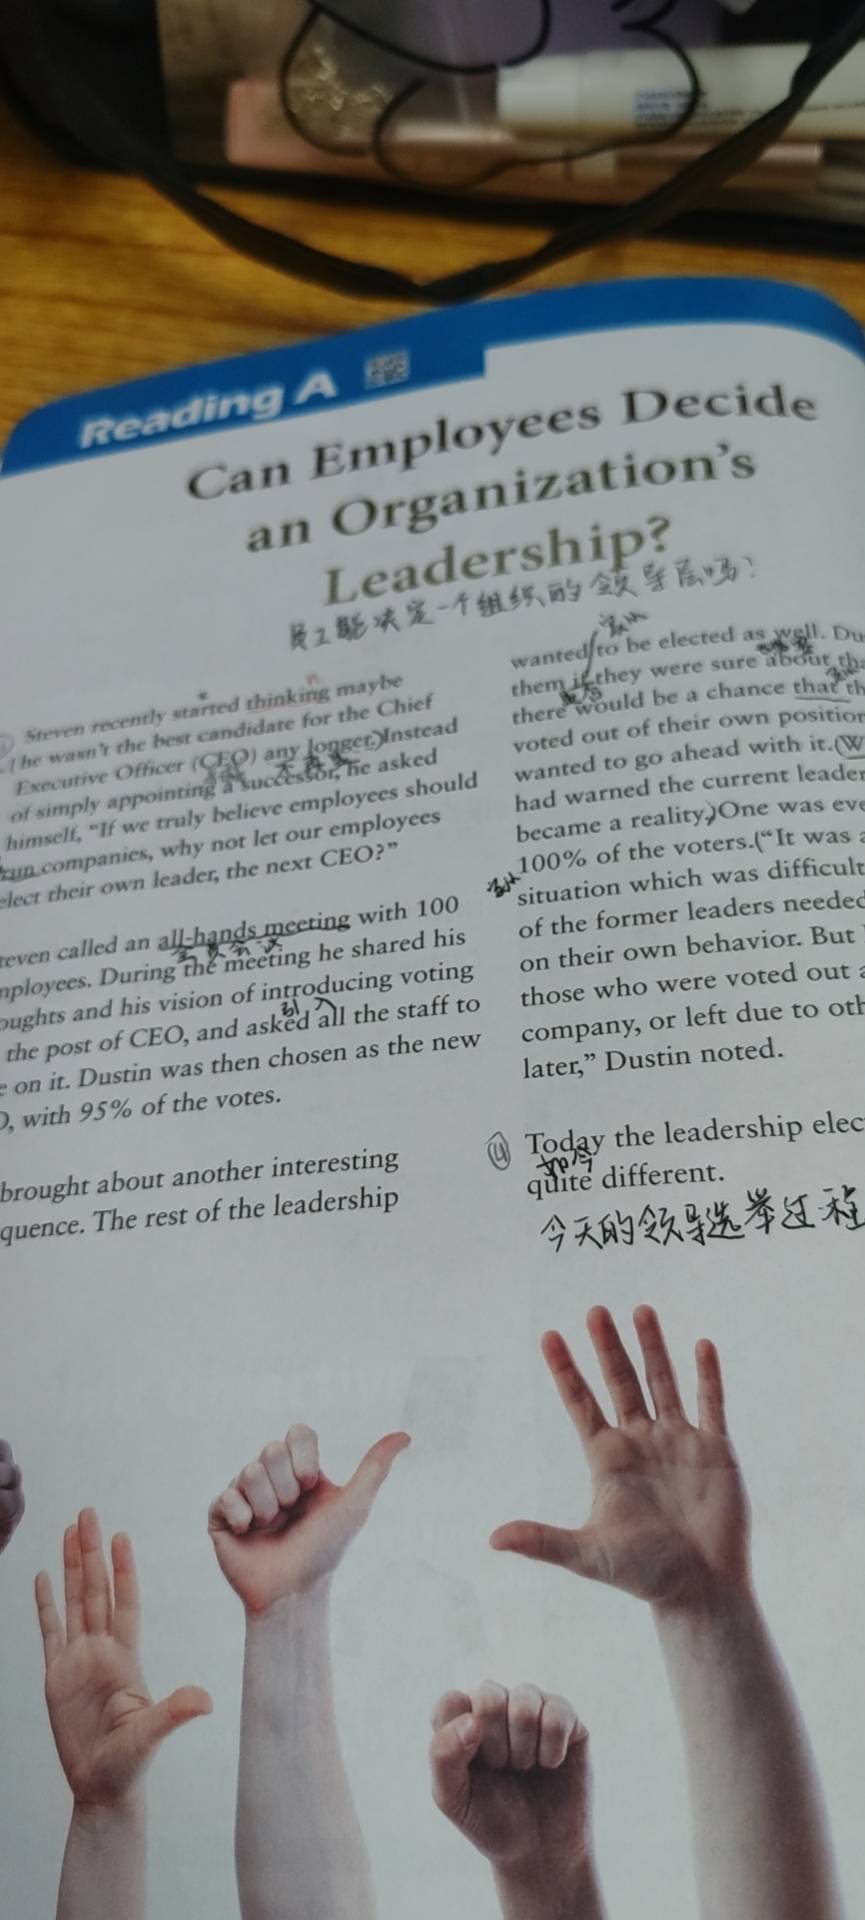 Reading A
Can Employees Decide
an Organization's
Leadership?
员工能决定一个组织的领导层吗?
Steven recently started thinking maybe
he wasn't the best candidate for the Chief
Executive Officer (CEO) any longer. Instead
of simply appointing a successor, he asked
不再是
himself, "If we truly believe employees should
run companies, why not let our employees
elect their own leader, the next CEO?"
teven called an all-hands meeting with 100
全员会议
mployees. During the meeting he shared his
oughts and his vision of introducing voting
引入
the post of CEO, and asked all the staff to
e on it. Dustin was then chosen as the new
O, with 95% of the votes.
brought about another interesting
quence. The rest of the leadership
wanted to be elected as well. Du
them if they were sure about tha
there would be a chance that th
voted out of their own position
wanted to go ahead with it. (W
had warned the current leader
became a reality.) One was eve
100% of the voters. ("It was a
situation which was difficult
of the former leaders needed
on their own behavior. But
those who were voted out a
company, or left due to oth
later," Dustin noted.
④ Today the leadership elec
如今
quite different.
今天的领导选举过程